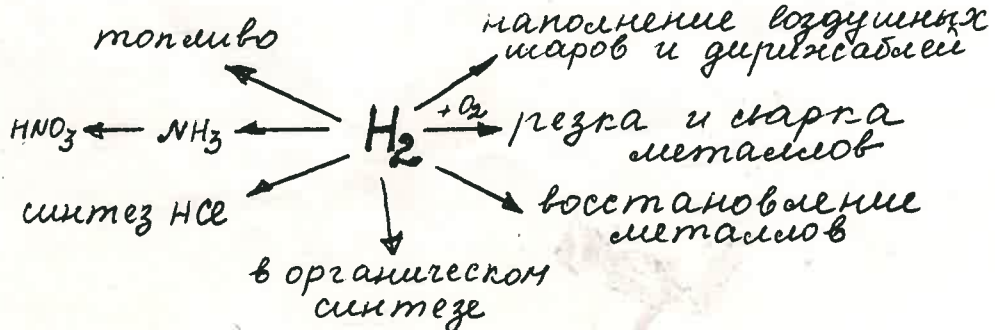 топливо
наполнение воздушных
шаров и дирижаблей
HNO₃ ← NH₃ ← H₂ +O₂ → резка и сварка
металлов
синтез HCl
восстановление
металлов
в органическом
синтезе